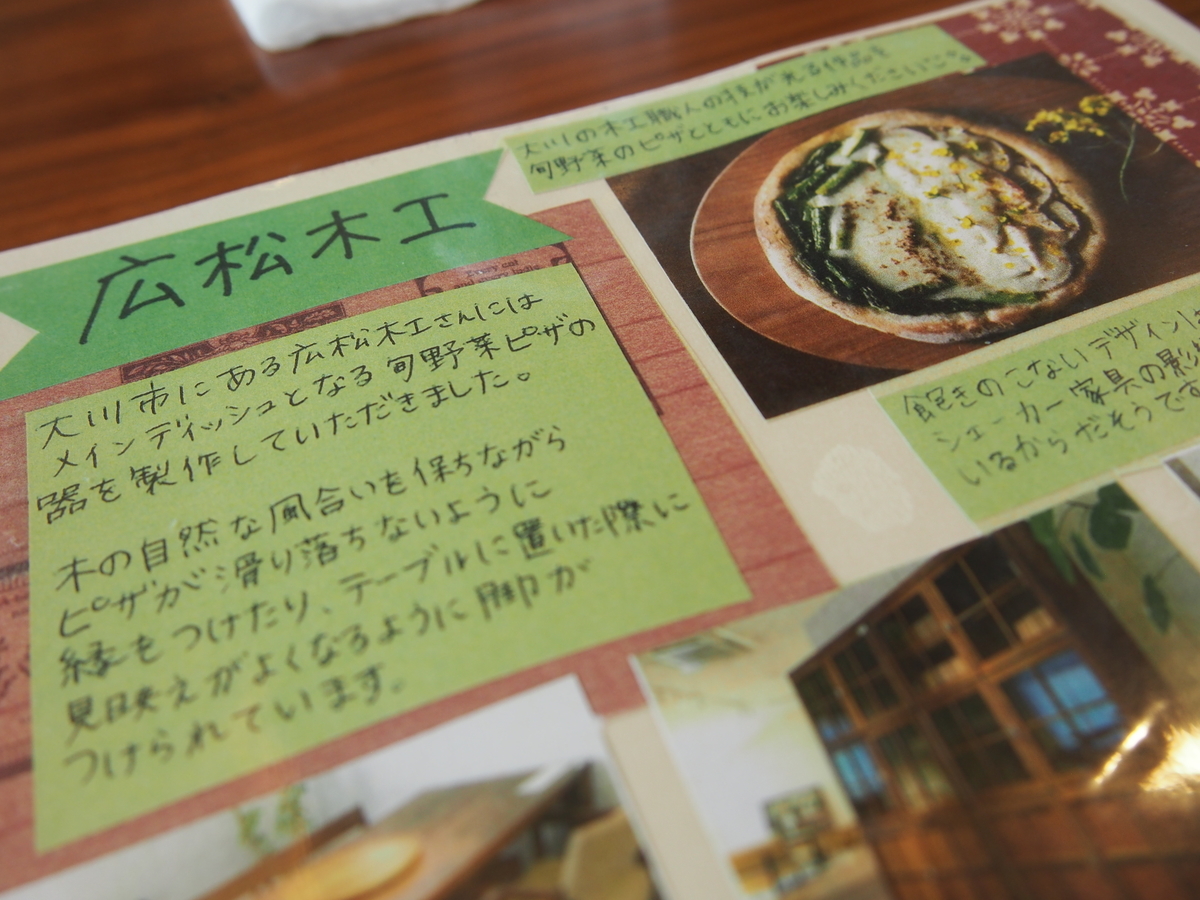 広松木工
大川市にある広松木工さんには
メインディッシュとなる旬野菜ピザの
器を製作していただきました。
木の自然な風合いを保ちながら
ピザが滑り落ちないように
縁もつけたり、テーブルに置いた際に
見映えがよくなるように脚が
つけられています。
大川の木工職人の技が光る作品を
旬野菜のピザとともにお楽しみください
飽きのこないデザインは
シェーカー家具の影
いるからだそうです